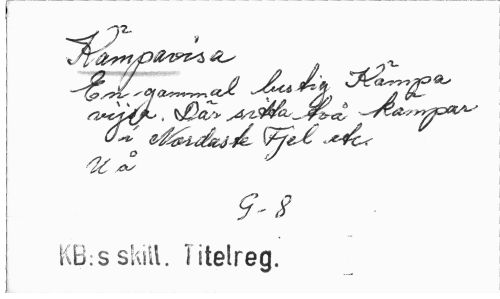 Kämpavisa
En gammal lustig Kämpa
vijsa. Där sitta två kämpar
i Nordaste Fjel etc.
U å
G-8
KB:s skill. Titelreg.